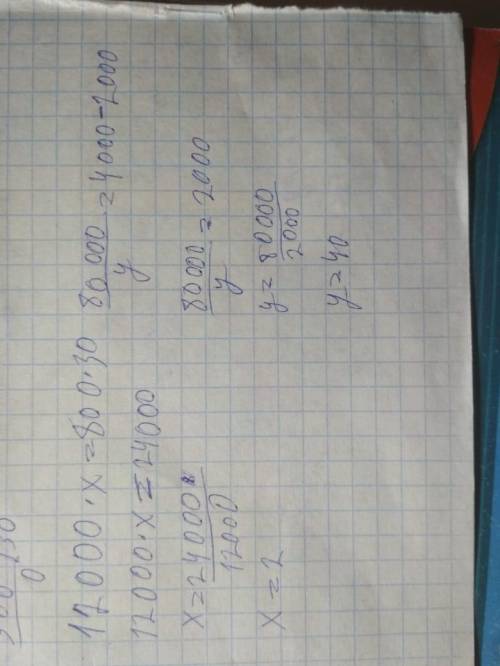 30
0
12000 · x = 800 · 30
12000 · x = 24000
x = 24000
12000
x = 2
80 000
y
= 4000 - 2000
80000
y
= 2000
y = 80000
2000
y = 40